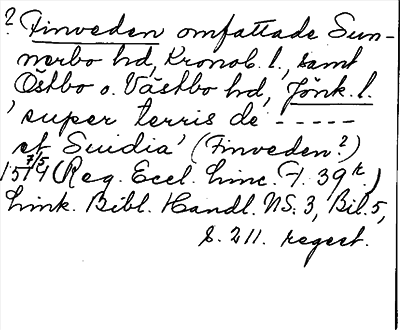 ? Finveden omfattade Sun-
nerbo hd, Kronob. l., samt
Östbo o. Västbo hd, Jönk. l.
'super terris de -----
et Suidia' (Finveden?)
1514 7/5 (Reg. Eccl. Linc. F. 39r.)
Link. Bibl. Handl. NS. 3, Bil. 5,
s. 211. regest.